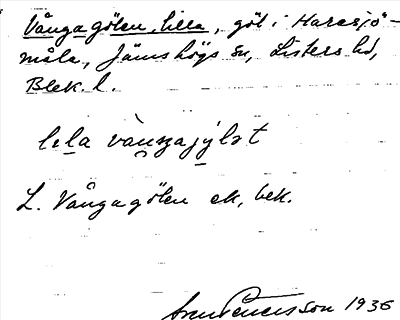 Vångagölen, lilla, göl i Harasjö-
måla, Jämshögs sn, Listers hd,
Blek. l.
lela vàŋgajýlət
L. Vångagölen ek, bek.
1936